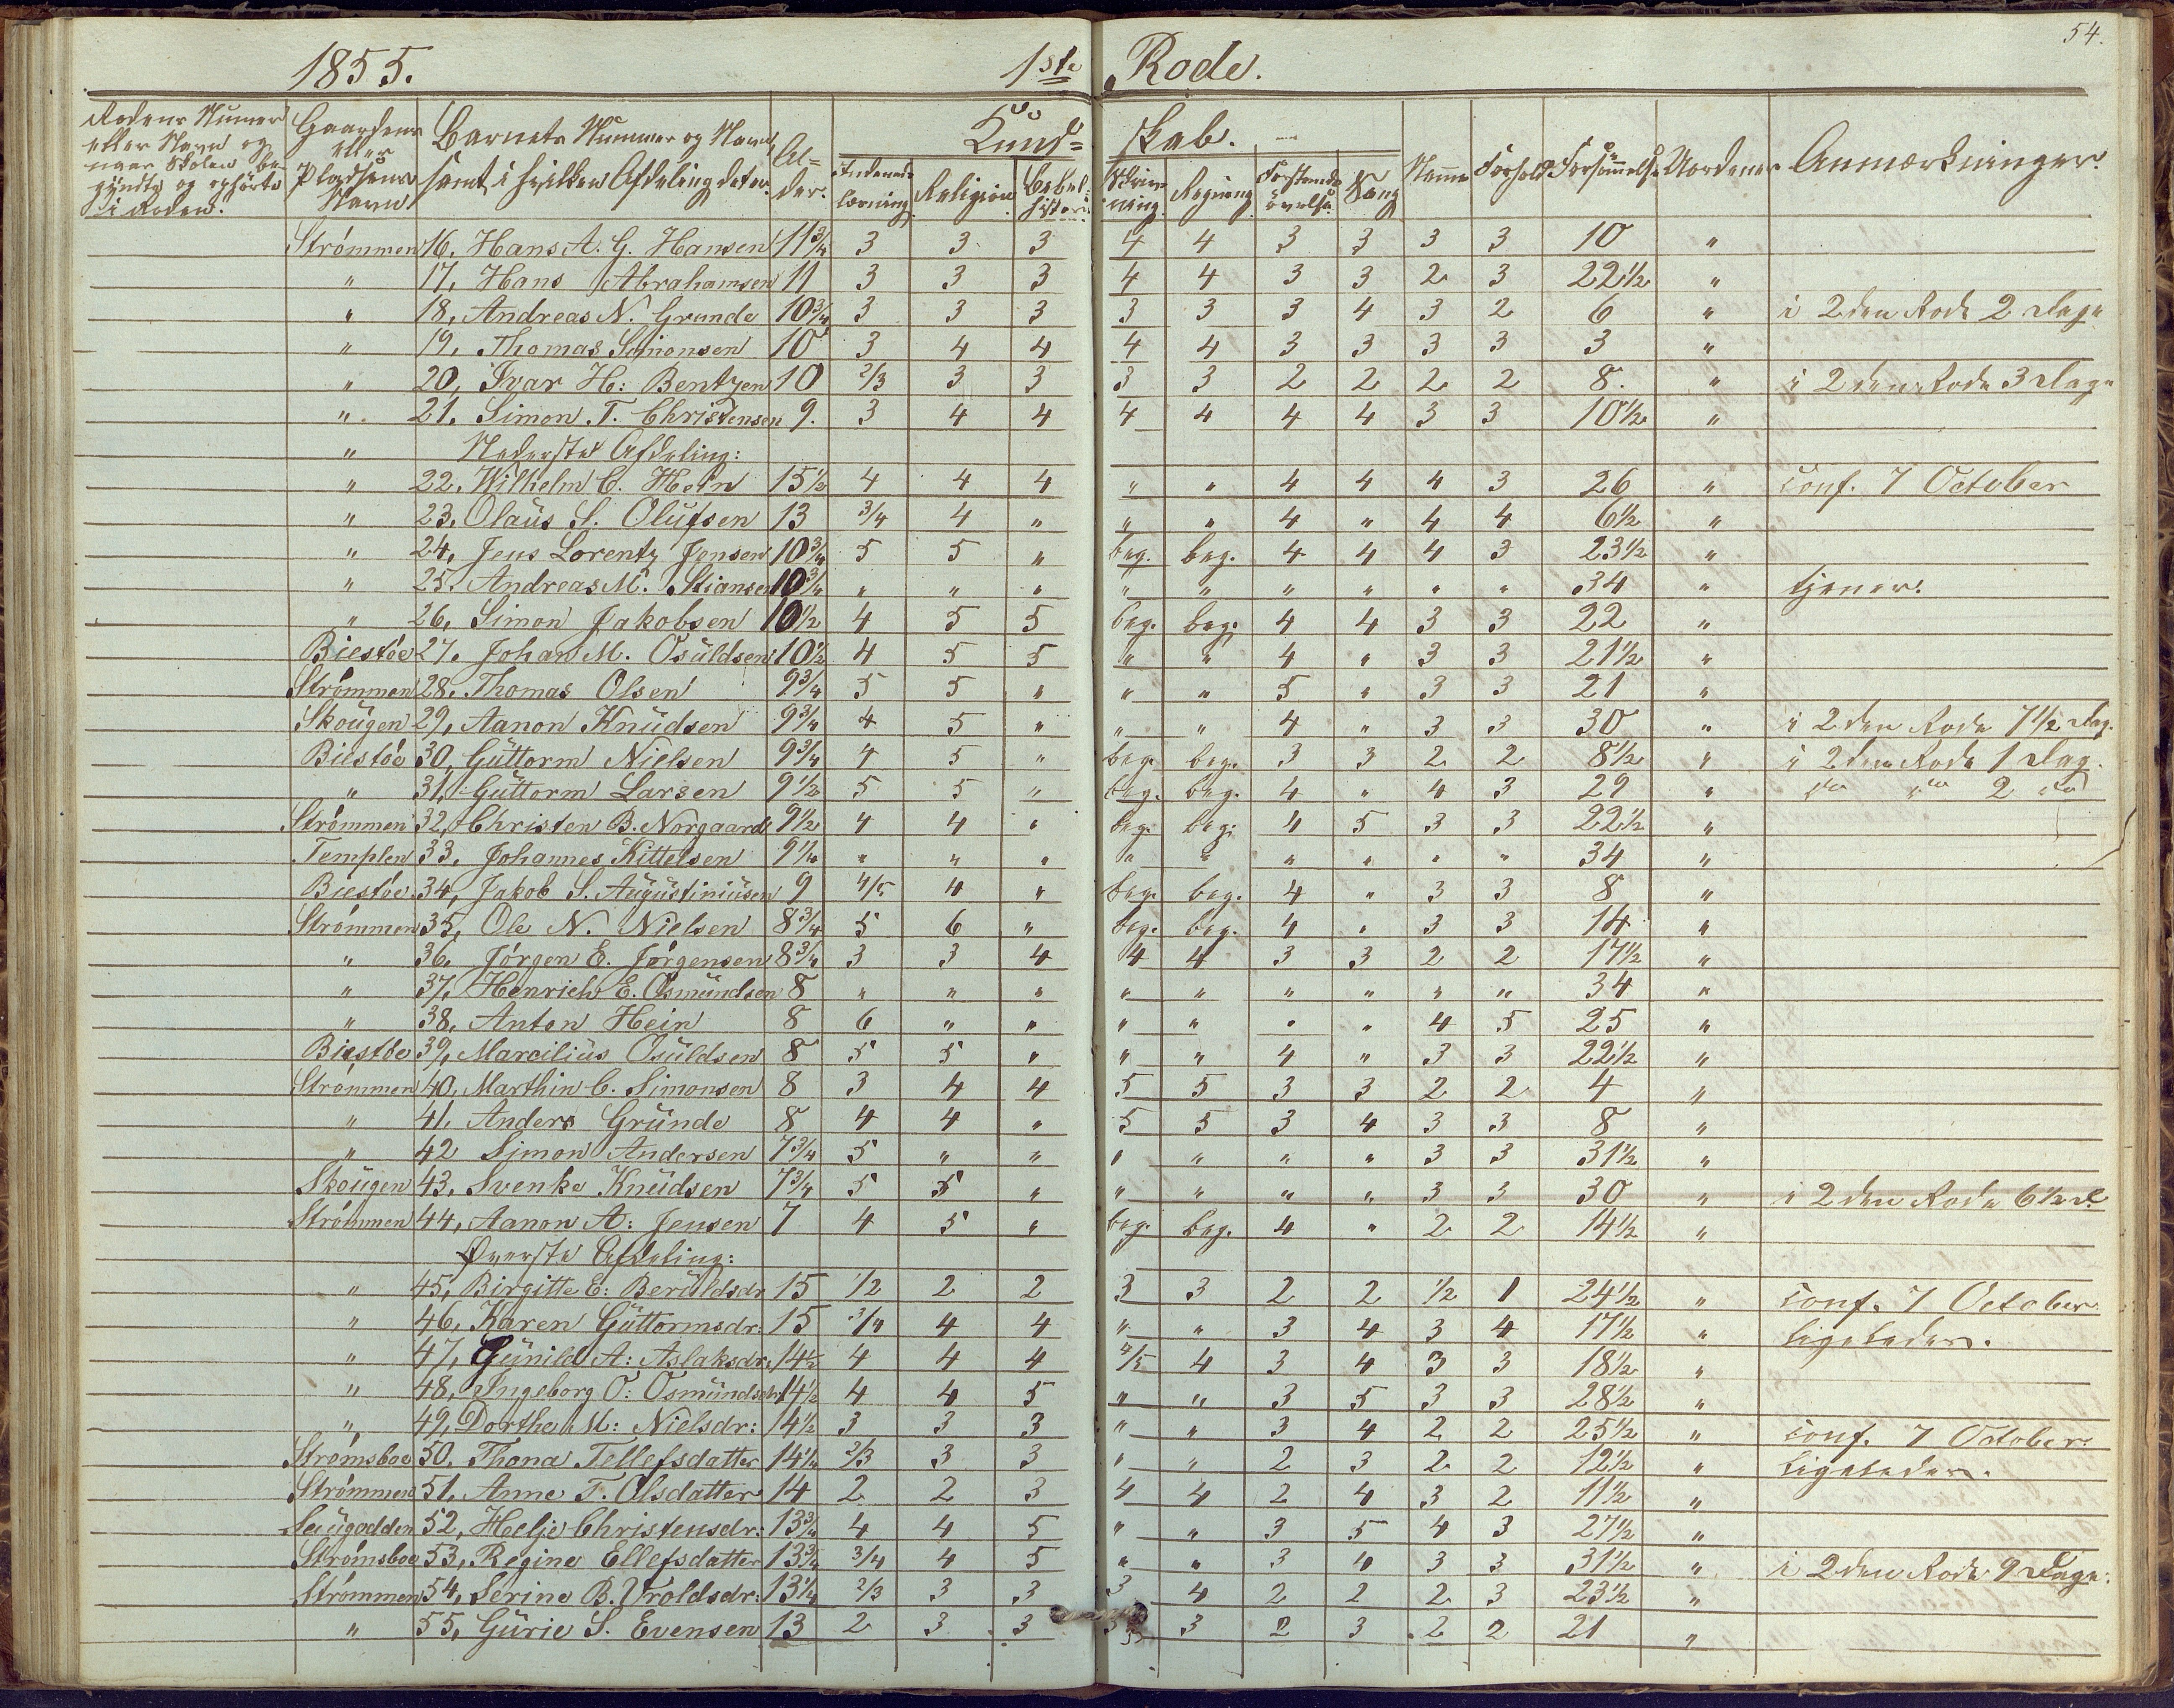 54.
1855. 1ste Rode.
Rodens Numer eller Navn og naar Skolen begyndte og ophørte i Roden. | Gaardens eller Pladsens Navn | Barnets Nummer og Navn samt i hvilken Afdeling det er. | Alder. | Kundskab. | Indenadslæsning | Religion | Bibelhistorie | Skrivning | Regning | Forstandsøvelse | Sang | Nemme | Forhold | Forsømmelse | Uordener | Anmærkninger.
Strømmen 16, Hans A. G. Hansen 11 3/4 3 3 3 4 4 3 3 3 3 10 "
" 17, Hans Abrahamsen 11 3 3 3 4 4 3 3 2 3 22 1/2 "
" 18, Andreas N. Grunde 10 3/4 3 3 3 3 3 3 4 3 2 6 " i 2den Rode 2 Dage
" 19. Thomas Simonsen 10 3 4 4 4 4 3 3 3 3 3 "
" 20, Ivar H: Bentzen 10 2/3 3 3 3 3 2 2 2 2 8. " i 2den Rode 3 Dage
" 21. Simon T. Christensen 9. 3 4 4 4 4 4 4 3 3 10 1/2 "
" Nederste Afdeling:
" 22. Wilhelm C. Hein 15 1/2 4 4 4 " " 4 4 4 3 26 " conf. 7 October
" 23. Olaus S. Olufsen 13 3/4 4 " " " 4 " 4 4 6 1/2 "
" 24, Jens Lorentz Jensen 10 3/4 5 5 " beg. beg. 4 4 4 3 23 1/2 "
" 25. Andreas M. Stiansen 10 3/4 " " " " " " " " " 34 " tjener.
" 26, Simon Jakobsen 10 1/2 4 5 5 beg. beg. 4 4 3 3 22 "
Biestøe 27. Johan M. Osuldsen 10 1/2 4 5 5 " " 4 " 3 3 21 1/2 "
Strømmen 28. Thomas Olsen 9 3/4 5 5 " " " 5 " 3 3 21 "
Skougen 29, Aanon Knudsen 9 3/4 4 5 " " " 4 " 3 3 30 " i 2den Rode 7 1/2 Dag.
Biestøe 30, Guttorm Nielsen 9 3/4 4 5 " beg. beg. 3 3 2 2 8 1/2 " i 2den Rode 1 Dag.
" 31, Guttorm Larsen 9 1/2 5 5 " beg. beg. 4 " 4 3 29 " do do 2 do
Strømmen 32, Christen B. Norgaard 9 1/2 4 4 " beg. beg. 4 5 3 3 22 1/2 "
Templen 33. Johannes Kittelsen 9 1/4 " " " " " " " " " 34 "
Biestøe 34, Jakob S. Augustiniusen 9 4/5 4 " beg. beg. 4 " 3 3 8 "
Strømmen 35, Ole N. Nielsen 8 3/4 5 6 " beg. beg. 4 " 3 3 14 "
" 36. Jørgen E. Jørgensen 8 3/4 3 3 4 4 4 3 3 2 2 17 1/2 "
" 37, Henrich E. Osmundsen 8 " " " " " " " " " 34 "
" 38, Anton Hein 8 6 " " " " " " 4 5 25 "
Biestøe 39, Marcilius Osuldsen 8 5 5 " " " 4 " 3 3 22 1/2 "
Strømmen 40, Marthin C. Simonsen 8 3 4 4 5 5 3 3 2 2 4 "
" 41, Anders Grunde 8 4 4 " 5 5 3 4 3 3 8 "
" 42 Simon Andersen 7 3/4 5 " " " " " " 3 3 31 1/2 "
Skougen 43, Svenke Knudsen 7 3/4 5 5 " " " " " 3 3 30 " i 2den Rode 6 1/2 D.
Strømmen 44, Aanon A: Jensen 7 4 5 " beg. beg. 4 " 2 2 14 1/2 "
Øverste Afdeling:
" 45, Birgitte E: Beruldsdr. 15 1/2 2 2 3 3 2 2 1/2 1 24 1/2 " conf. 7 October
" 46, Karen Guttormsdr: 15 3/4 4 4 " " 3 4 3 4 17 1/2 " ligeledes.
" 47, Gunild A: Aslaksdr. 14 1/2 4 4 4 4/5 4 3 4 3 3 18 1/2 "
" 48, Ingeborg O: Osmundsdr. 14 1/2 4 4 5 " " 3 5 3 3 28 1/2 "
" 49, Dorthe M: Nielsdr: 14 1/2 3 3 3 " " 3 4 2 2 25 1/2 " conf. 7 October
Strømsboe 50. Thona Tellefsdatter 14 1/4 2/3 3 3 " " 2 3 2 2 12 1/2 " ligeledes.
Strømmen 51, Anne T. Olsdatter 14 2 2 3 4 4 2 4 3 2 11 1/2 "
52, Helje Christensdr: 13 3/4 4 4 5 " " 3 5 4 3 27 1/2 "
Strømsboe 53, Regine Ellefsdatter 13 3/4 3/4 4 5 " " 3 4 3 3 31 1/2 " i 2den Rode 9 Dage.
Strømmen 54, Serine B. Uroldsdr: 13 1/4 2/3 3 3 3 4 2 2 2 3 23 1/2 "
" 55, Gurie S. Evensen 13 2 3 3 3 3 2 3 2 2 21 "